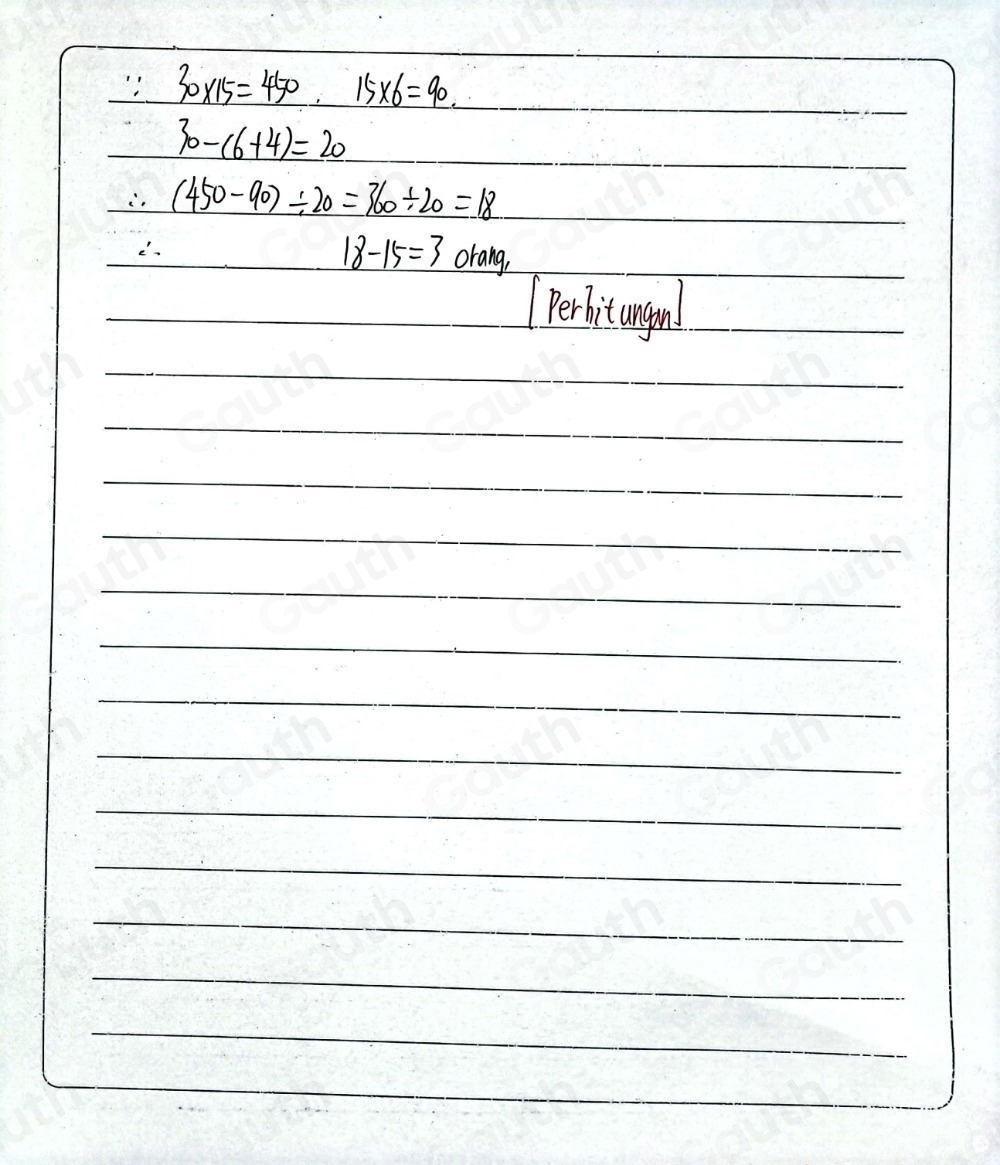 ∵ 30×15=450, 15×6=90,
30-(6+4)=20
∴ (450-90)÷20=360÷20=18
∴ 18-15=3 orang,
[Perhitungan]